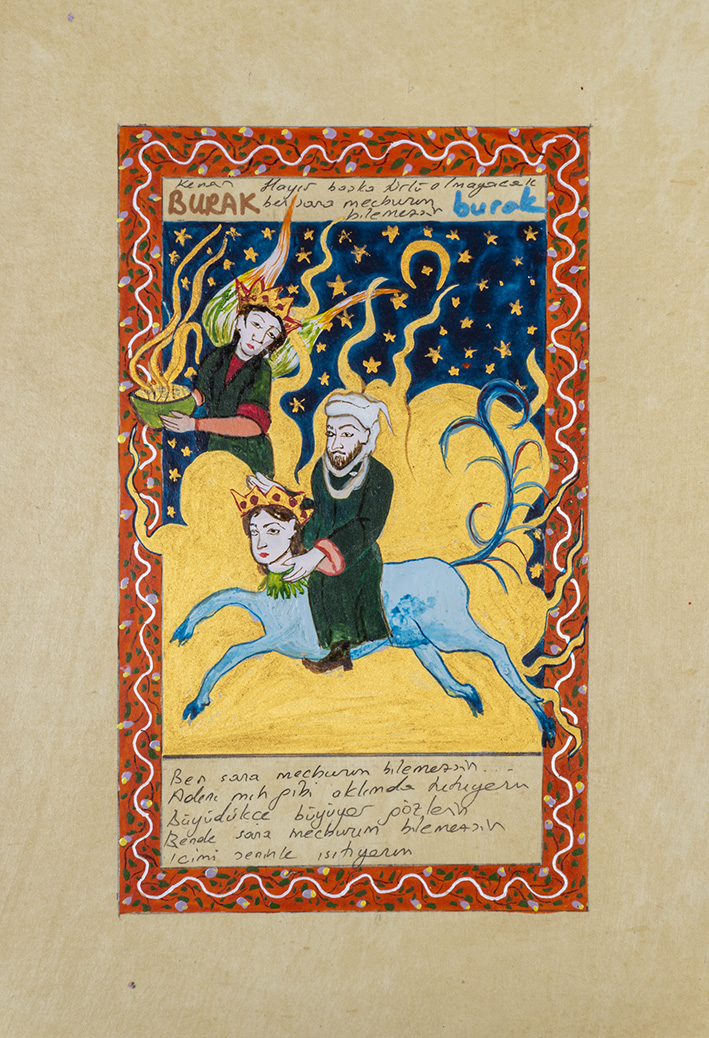 Kenan Hayır başka türlü olmayacak
BURAK ben sana mecburum burak
bilemezsin
Ben sana mecburum bilemezsin...
Adını mıh gibi aklımda tutuyorum
Büyüdükçe büyüyor gözlerin
Bende sana mecburum bilemezsin
içimi seninle ısıtıyorum